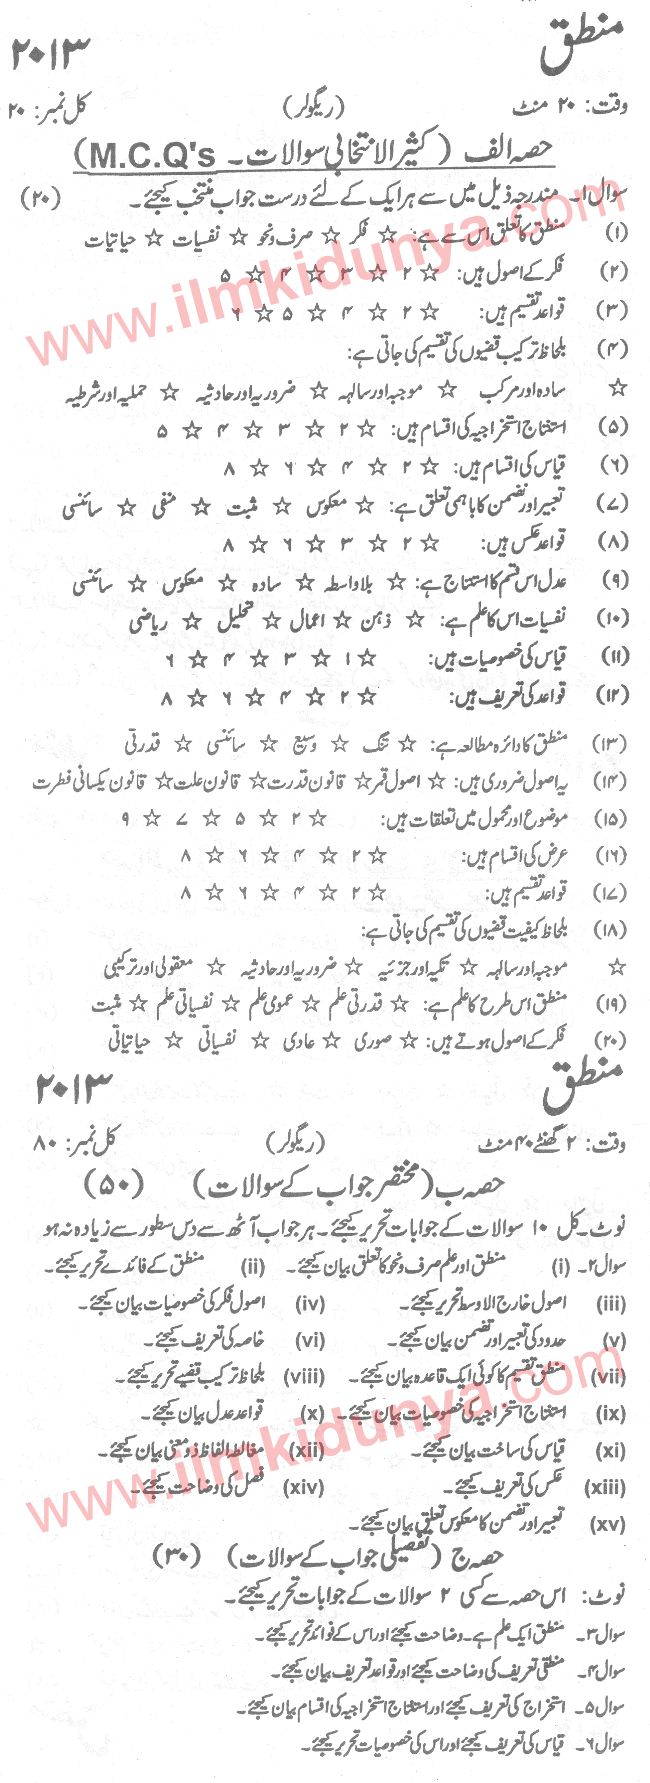 منطق
۲۰۱۳
وقت: ۲۰ منٹ (ریگولر) کل نمبر: ۲۰
حصہ الف (کثیر الانتخابی سوالات۔ M.C.Q's)
سوال ۱۔ مندرجہ ذیل میں سے ہر ایک کے لئے درست جواب منتخب کیجئے۔ (۲۰)
(۱) منطق کا تعلق اس سے ہے: ☆ فکر ☆ صرف و نحو ☆ نفسیات ☆ حیاتیات
(۲) فکر کے اصول ہیں: ☆ ۲ ☆ ۳ ☆ ۴ ☆ ۵
(۳) قواعد تقسیم ہیں: ☆ ۲ ☆ ۴ ☆ ۵ ☆ ۶
(۴) بلحاظ ترکیب قضیوں کی تقسیم کی جاتی ہے:
☆ سادہ اور مرکب ☆ موجبہ اور سالبہ ☆ ضروریہ اور حادثیہ ☆ حملیہ اور شرطیہ
(۵) استنتاج استخراجیہ کی اقسام ہیں: ☆ ۲ ☆ ۳ ☆ ۴ ☆ ۵
(۶) قیاس کی اقسام ہیں: ☆ ۲ ☆ ۴ ☆ ۶ ☆ ۸
(۷) تعبیر اور تضمن کا باہمی تعلق ہے: ☆ معکوس ☆ مثبت ☆ منفی ☆ سائنسی
(۸) قواعد عکس ہیں: ☆ ۲ ☆ ۳ ☆ ۶ ☆ ۸
(۹) عدل اس قسم کا استنتاج ہے: ☆ بلاواسطہ ☆ سادہ ☆ معکوس ☆ سائنسی
(۱۰) نفسیات اس کا علم ہے: ☆ ذہن ☆ اعمال ☆ تحلیل ☆ ریاضی
(۱۱) قیاس کی خصوصیات ہیں: ☆ ۱ ☆ ۳ ☆ ۴ ☆ ۶
(۱۲) قواعد کی تعریف ہیں: ☆ ۲ ☆ ۴ ☆ ۶ ☆ ۸
(۱۳) منطق کا دائرہ مطالعہ ہے: ☆ تنگ ☆ وسیع ☆ سائنسی ☆ قدرتی
(۱۴) یہ اصول ضروری ہیں: ☆ اصول قمر ☆ قانون قدرت ☆ قانون علت ☆ قانون یکسانی فطرت
(۱۵) موضوع اور محمول میں تعلقات ہیں: ☆ ۲ ☆ ۵ ☆ ۷ ☆ ۹
(۱۶) عرض کی اقسام ہیں: ☆ ۲ ☆ ۴ ☆ ۶ ☆ ۸
(۱۷) قواعد تقسیم ہیں: ☆ ۲ ☆ ۴ ☆ ۶ ☆ ۸
(۱۸) بلحاظ کیفیت قضیوں کی تقسیم کی جاتی ہے:
☆ موجبہ اور سالبہ ☆ تکیہ اور جزئیہ ☆ ضروریہ اور حادثیہ ☆ معقولی اور ترکیبی
(۱۹) منطق اس طرح کا علم ہے: ☆ قدرتی علم ☆ عمومی علم ☆ نفسیاتی علم ☆ مثبت
(۲۰) فکر کے اصول ہوتے ہیں: ☆ صوری ☆ عادی ☆ نفسیاتی ☆ حیاتیاتی
منطق
۲۰۱۳
وقت: ۲ گھنٹے ۴۰ منٹ (ریگولر) کل نمبر: ۸۰
حصہ ب (مختصر جواب کے سوالات) (۵۰)
نوٹ۔ کل ۱۰ سوالات کے جوابات تحریر کیجئے۔ ہر جواب آٹھ سے دس سطور سے زیادہ نہ ہو
سوال ۲۔ (i) منطق اور علم صرف و نحو کا تعلق بیان کیجئے۔ (ii) منطق کے فائدے تحریر کیجئے۔
(iii) اصول خارج الاوسط تحریر کیجئے۔ (iv) اصول فکر کی خصوصیات بیان کیجئے۔
(v) حدود کی تعبیر اور تضمن بیان کیجئے۔ (vi) خاصہ کی تعریف کیجئے۔
(vii) منطق تقسیم کا کوئی ایک قاعدہ بیان کیجئے۔ (viii) بلحاظ ترکیب قضیے تحریر کیجئے۔
(ix) استنتاج استخراجیہ کی خصوصیات بیان کیجئے۔ (x) قواعد عدل بیان کیجئے۔
(xi) قیاس کی ساخت بیان کیجئے۔ (xii) مغالطہ الفاظ ذو معنی بیان کیجئے۔
(xiii) عکس کی تعریف کیجئے۔ (xiv) فصل کی وضاحت کیجئے۔
(xv) تعبیر اور تضمن کا معکوس تعلق بیان کیجئے۔
حصہ ج (تفصیلی جواب کے سوالات) (۳۰)
نوٹ: اس حصہ سے کسی ۲ سوالات کے جوابات تحریر کیجئے۔
سوال ۳۔ منطق ایک علم ہے۔ وضاحت کیجئے اور اس کے فوائد تحریر کیجئے۔
سوال ۴۔ منطقی تعریف کی وضاحت کیجئے اور قواعد تعریف بیان کیجئے۔
سوال ۵۔ استخراج کی تعریف کیجئے اور استنتاج استخراجیہ کی اقسام بیان کیجئے۔
سوال ۶۔ قیاس کی تعریف کیجئے اور اس کی خصوصیات تحریر کیجئے۔
www.ilmkidunya.com
www.ilmkidunya.com